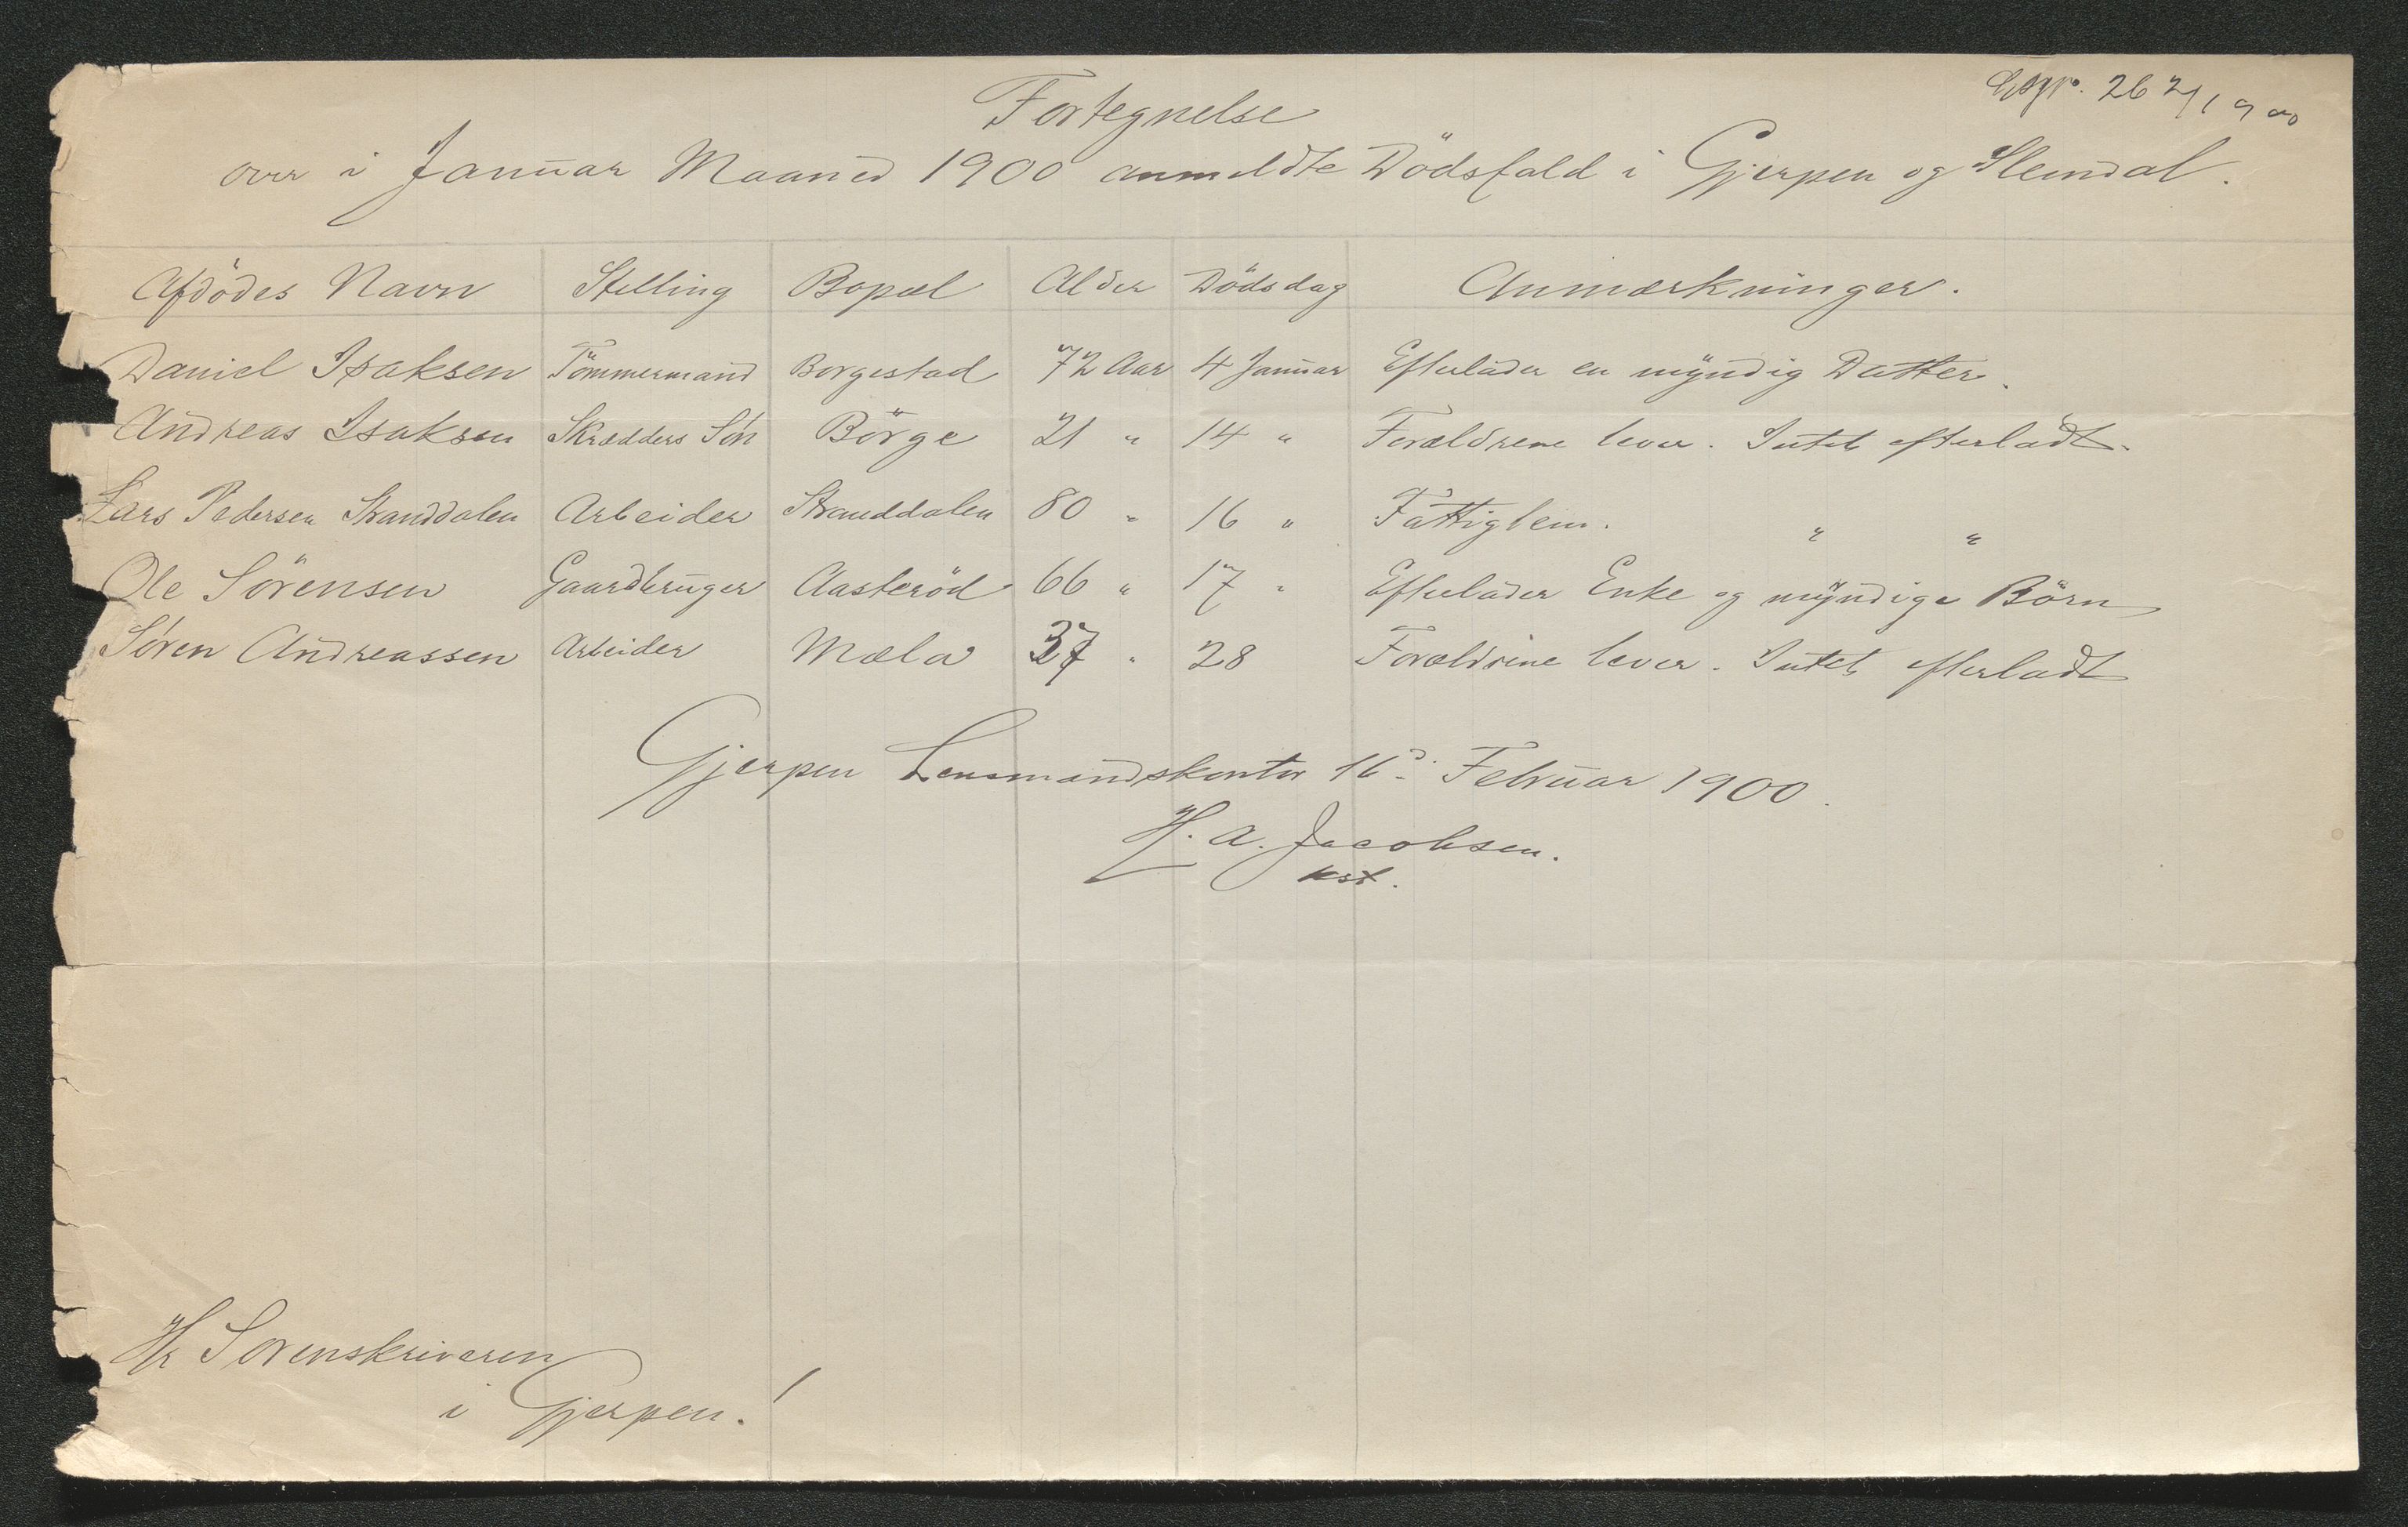 262/1900
Fortegnelse
over i Januar Maaned 1900 anmeldte Dödsfald i Gjerpen og Slemdal.
Afdödes Navn Stilling Bopæl Alder Dödsdag Anmærkninger.
Daniel Isaksen Tömmermand Borgestad 72 Aar 4 Januar Efterlader en myndig Datter.
Andreas Isaksen Skrædders Sön Börge 21 " 14 " Forældrene lever. Intet efterladt.
Lars Pedersen Stranddalen Arbeider Stranddalen 80 " 16 " Fattiglem. " "
Ole Sörensen Gaardbruger Aasteröd 66 " 17 " Efterlader Enke og myndige Börn
Sören Andreassen Arbeider Mæla 37 " 28 Forældrene lever. Intet efterladt
Gjerpen Lensmandskontor 16d. Februar 1900.
H. A. Jacobsen.
kst.
Hr Sorenskriveren
i Gjerpen!